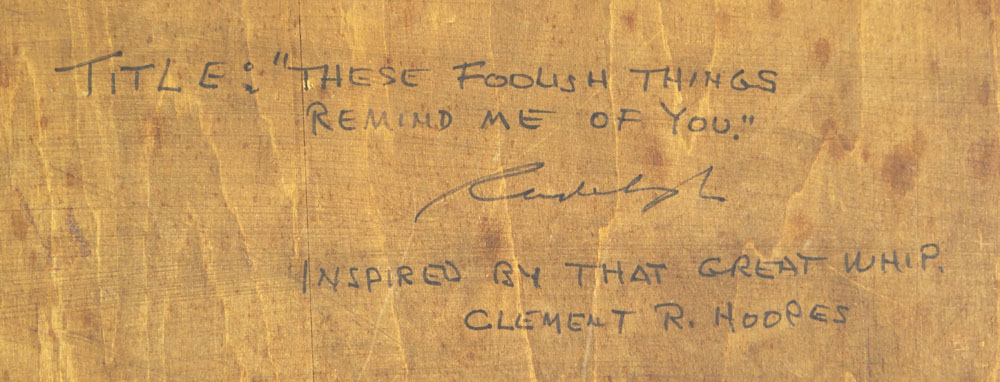 TITLE: "THESE FOOLISH THINGS
REMIND ME OF YOU."
INSPIRED BY THAT GREAT WHIP.
CLEMENT R. HOOPES